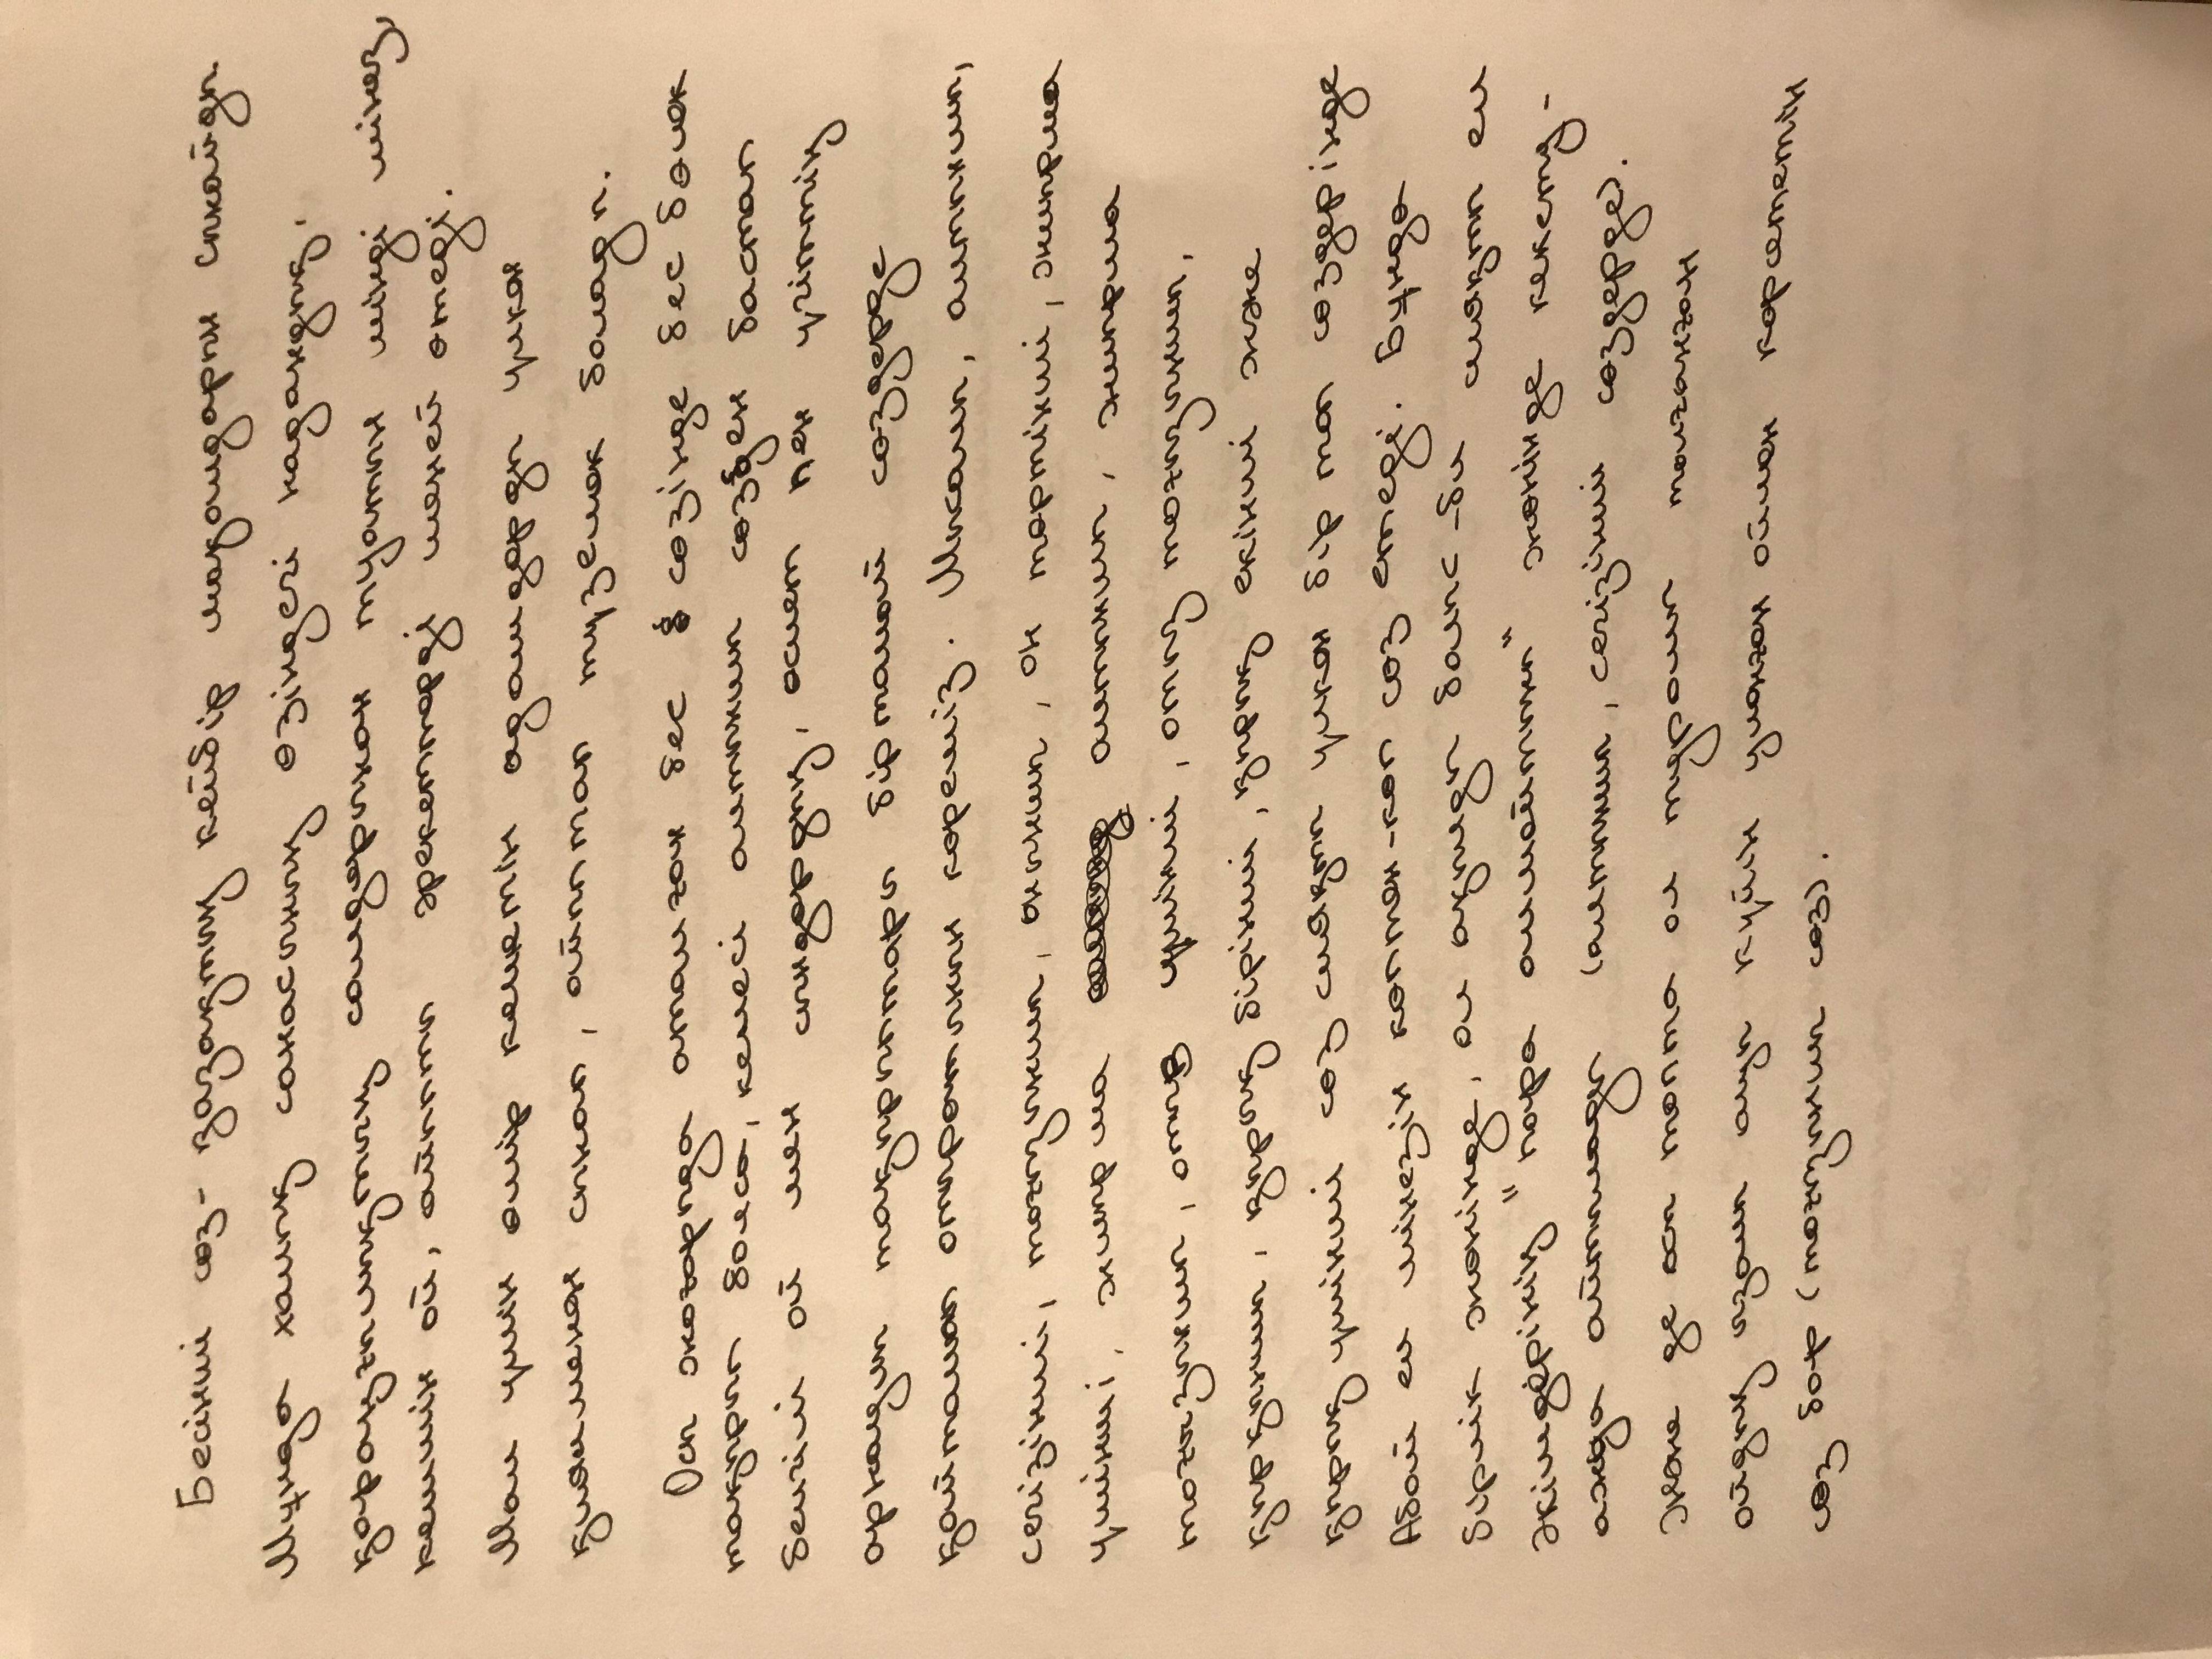 Бесінші сөз - қазақтың кейбір мақалдарын сынайды.
Мұнда халық санасының өзіндегі надандық,
қараңғылықтың салдарынан туатын мінді мінез,
кемшін ой, айыпты әрекеттерді шеней өтеді.
Мал үшін өмір кешетін адамдарды үлкен
қиялменен сынап, айыптап түземек болады.
Осы жоғарыда аталған бес сөзінде бес бөлек
тақырып болса, келесі алтыншы сөзден бастап
белгілі ой мен сындардың, өсиет пен үгіттің
арнаулы тақырыптары бірталай сөздерде
қайталап отыратынын көреміз. Мысалы, алтыншы,
сегізінші, тоғызыншы, оныншы, он төртінші, жиырма
үшінші, жиырма алтыншы, жиырма
тоғызыншы, отыз үшінші, отыз тоғызыншы,
қырқыншы, қырық бірінші, қырық екінші және
қырық үшінші сөз сияқты үлкен бір топ сөздерінде
Абай ел мінезін көптен-көп сөз етеді. Бұнда
бірлік жөнінде, ол ақылды болыс-би сияқты ел
әкімдерінің "пара алмайтыны" жөнінде кекету-
ажуа айтылады (алтыншы, сегізінші сөздерде).
Және де осы топта ол туралы толғанған
ойдың ызалы ащы күйін уланған оймен көрсететін
сөз бар (тоғызыншы сөз).